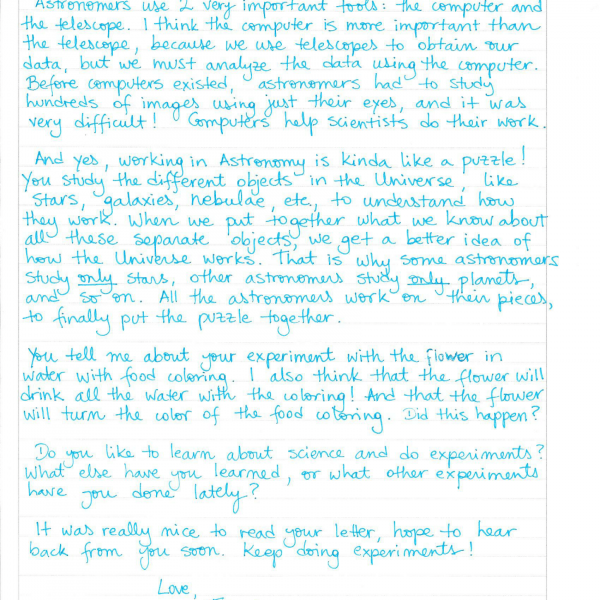 Astronomers use 2 very important tools: the computer and
the telescope. I think the computer is more important than
the telescope, because we use telescopes to obtain our
data, but we must analyze the data using the computer.
Before computers existed, astronomers had to study
hundreds of images using just their eyes, and it was
very difficult! Computers help scientists do their work.
And yes, working in Astronomy is kinda like a puzzle!
You study the different objects in the Universe, like
stars, galaxies, nebulae, etc, to understand how
they work. When we put together what we know about
all these separate objects, we get a better idea of
how the Universe works. That is why some astronomers
study only stars, other astronomers study only planets,
and so on. All the astronomers work on their pieces,
to finally put the puzzle together.
You tell me about your experiment with the flower in
water with food coloring. I also think that the flower will
drink all the water with the coloring! And that the flower
will turn the color of the food coloring. Did this happen?
Do you like to learn about science and do experiments?
What else have you learned, or what other experiments
have you done lately?
It was really nice to read your letter, hope to hear
back from you soon. Keep doing experiments!
Love,